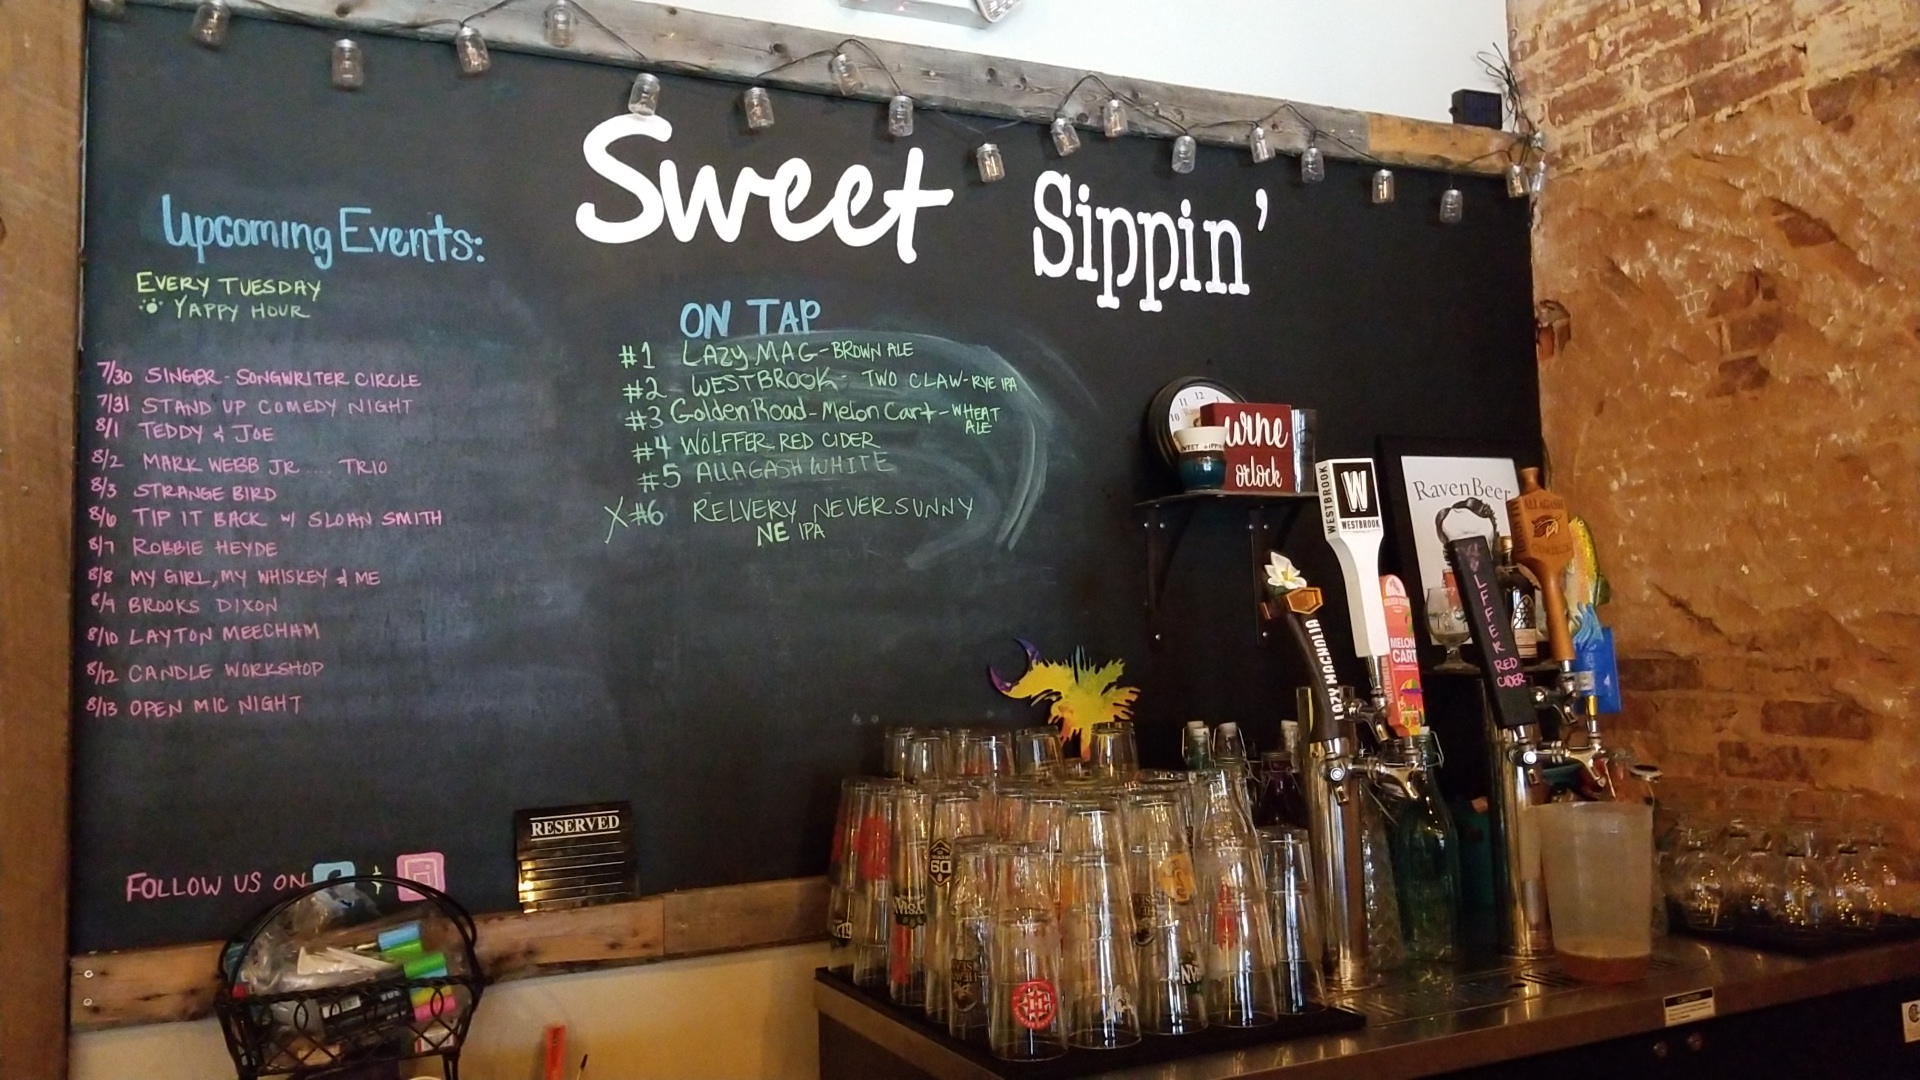 Sweet Sippin'
Upcoming Events:
EVERY TUESDAY
YAPPY HOUR
7/30 SINGER-SONGWRITER CIRCLE
7/31 STAND UP COMEDY NIGHT
8/1 TEDDY & JOE
8/2 MARK WEBB JR.... TRIO
8/3 STRANGE BIRD
8/6 TIP IT BACK W/ SLOAN SMITH
8/7 ROBBIE HEYDE
8/8 MY GIRL, MY WHISKEY & ME
8/9 BROOKS DIXON
8/10 LAYTON MEECHAM
8/12 CANDLE WORKSHOP
8/13 OPEN MIC NIGHT
FOLLOW US ON
ON TAP
#1 LAZY MAG-BROWN ALE
#2 WESTBROOK- TWO CLAW-RYE IPA
#3 Golden Road-Melon Cart-WHEAT
ALE
#4 WÖLFFER RED CIDER
#5 ALLAGASH WHITE
X #6 RELVERY NEVER SUNNY
NE IPA
RESERVED
11 12 1
10
wine
o'clock
WESTBROOK
W
WESTBROOK
RavenBeer
ALLAGASH
LAZY MAGNOLIA
MELON
CART
WÖLFFER
RED
CIDER